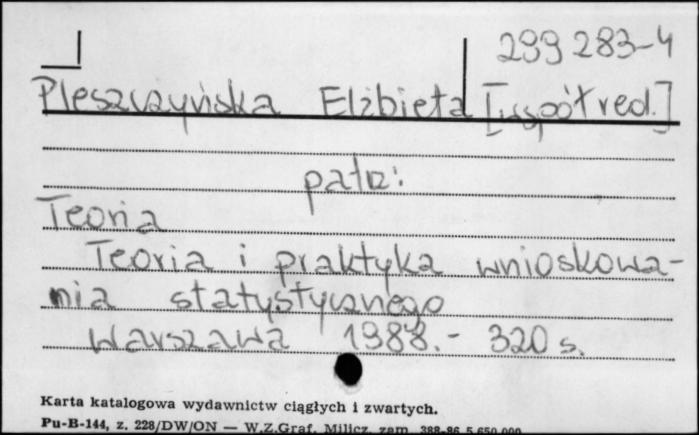 299 283-4
Pleszczyńska Elżbieta [współred.]
patrz:
Teoria
Teoria i praktyka wnioskowa-
nia statystycznego
Warszawa 1988.- 320 s.
Karta katalogowa wydawnictw ciągłych i zwartych.
Pu-B-144, z. 228/DW/ON — W.Z.Graf. Milicz, zam. 388-86 5.650.000